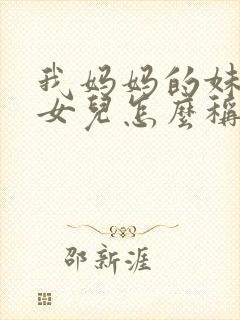 我妈妈的妹
女兒怎麼稱
邵新涯